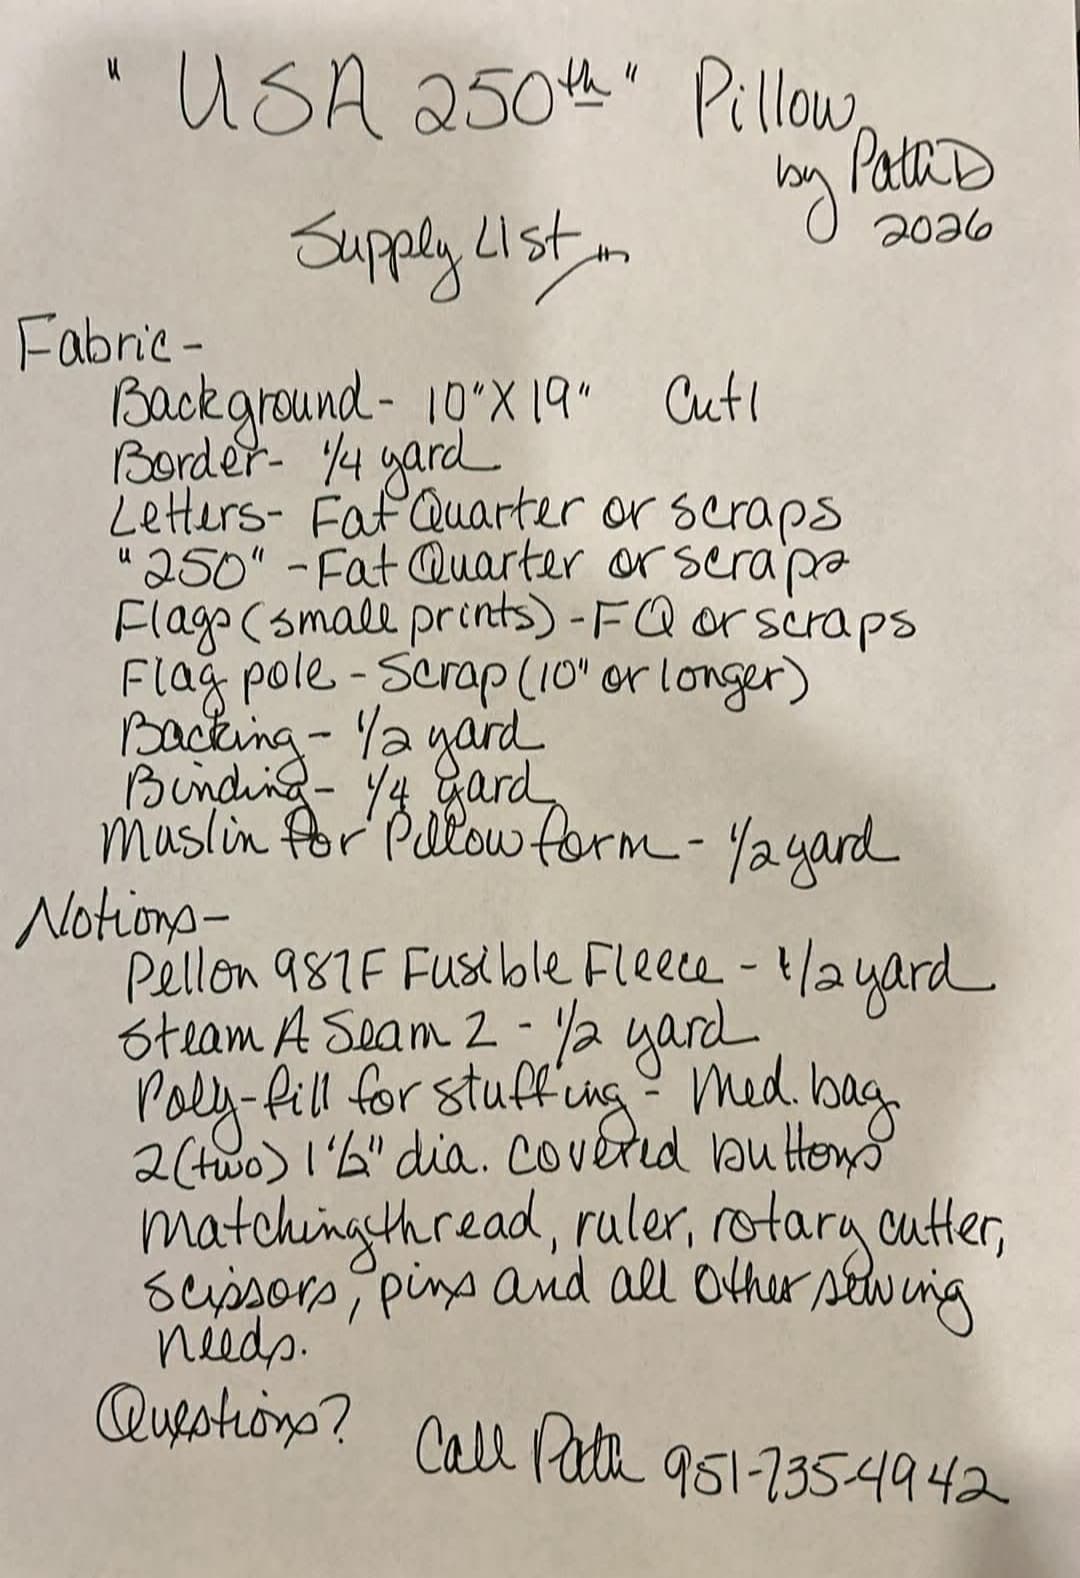 "USA 250th" Pillow
by Patti D
2026
Supply List
Fabric-
Background- 10"X19" Cut 1
Border- 1/4 yard
Letters- Fat Quarter or scraps
"250" - Fat Quarter or scraps
Flags (small prints) - FQ or scraps
Flag pole - Scrap (10" or longer)
Backing - 1/2 yard
Binding - 1/4 yard
Muslin for Pillow form - 1/2 yard
Notions-
Pellon 987F Fusible Fleece - 1/2 yard
Steam A Seam 2 - 1/2 yard
Poly-fill for stuffing - Med. bag
2 (two) dia. covered buttons
Matching thread, ruler, rotary cutter,
scissors, pins and all other sewing
needs.
Questions?
Call Patti 951-735-4942